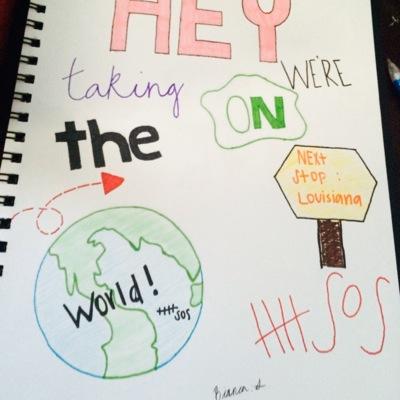 HEY
WE'RE
taking
ON
the
NEXT
STOP:
Louisiana
World!
SOS
SOS